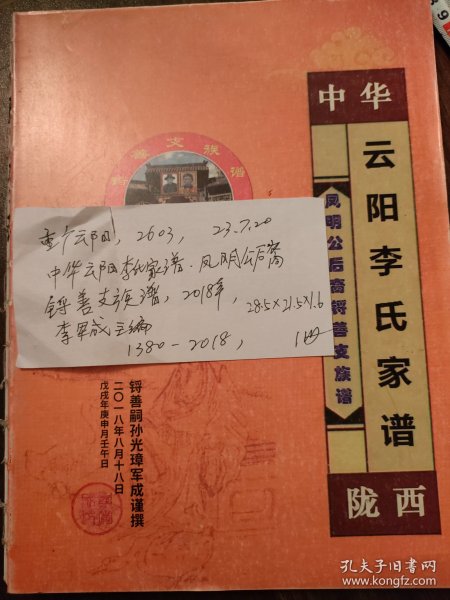 中华
云阳李氏家谱
凤明公后裔锝善支族谱
陇西
善支族谱
重广云阳, 2603, 23.7.20
中华云阳李氏家谱·凤明公后裔
锝善支族谱, 2018年,
28.5×21.5×1.6
李军成主编
1380-2018, 1册
锝善嗣孙光璋军成谨撰
二〇一八年八月十八日
戊戌年庚申月壬午日
孔夫子旧书网
www.kongfz.com